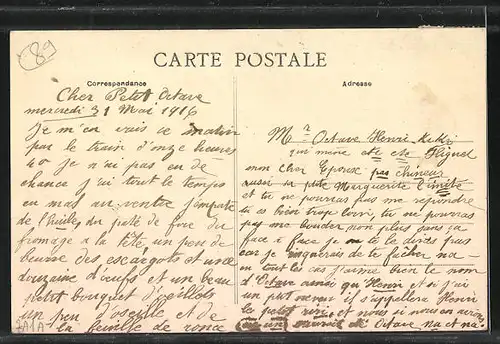 89
CARTE POSTALE
Correspondance
Adresse
Cher Petit Octave
mercredi 31 Mai 1916
Je m'en vais ce matin
par le train d'onze heures
40 je n'ai pas eu de
chance j'ai tout le temps
eu mas au ventre j'emporte
de l'huile, du pâté de foie du
fromage a la tête un peu de
beurre des escargots et une
douzaine d'œufs et un beau
petit bouquet d'œillets
un peu d'oseille et de
la feuille de ronce
Mr Octave Henri
qui mène
mon cher Epoux pas
aussi ta petite Marguerite t'imite
et tu ne pourras pas me répondre
tu es bien trop loin, tu ne pourras
pas me bouder non plus sans ça
face à face je ne te le dirais pas
car je risquerais de te fâcher na
en tout les cas j'aime bien le nom
d'Octave ainsi qu'Henri et si j'ai
un petit neveu il s'appellera Henri
le petit et nous si nous en avons
un Octave na et na